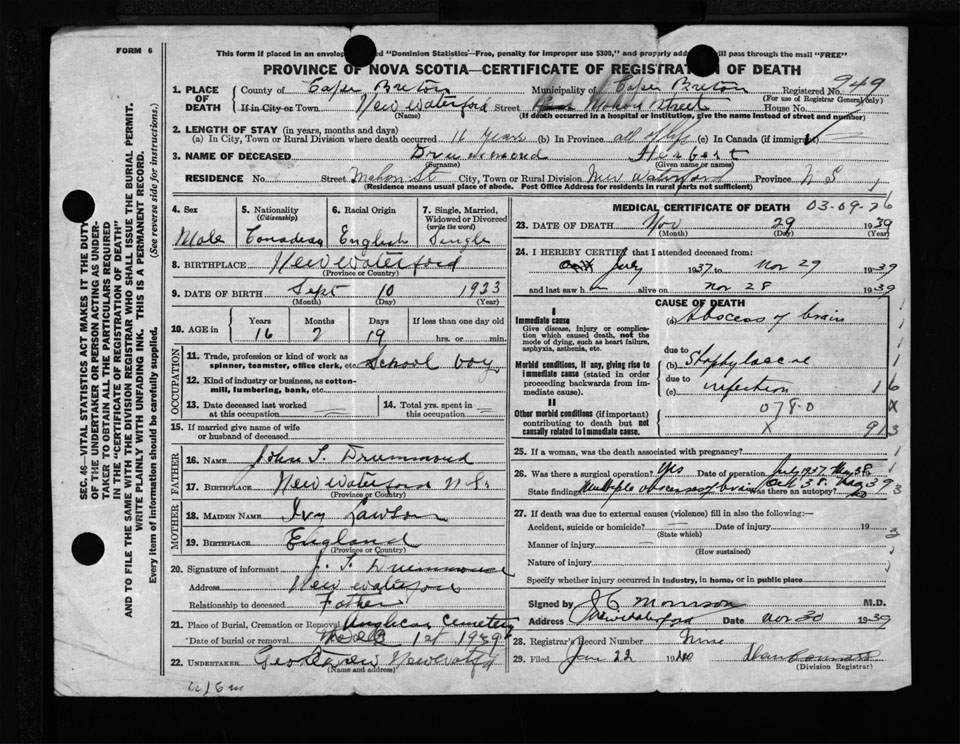 FORM 6
This form if placed in an envelope "Dominion Statistics—Free, penalty for improper use $300," and properly will pass through the mail "FREE"
PROVINCE OF NOVA SCOTIA—CERTIFICATE OF REGISTRATION OF DEATH
1. PLACE OF DEATH County of Cape Breton Municipality of Cape Breton Registered No. 949
(For use of Registrar General only)
If in City or Town New Waterford Street Mahon Street House No.
(Name) (If death occurred in a hospital or institution, give the name instead of street and number)
2. LENGTH OF STAY (in years, months and days)
(a) In City, Town or Rural Division where death occurred 16 years (b) In Province all of life (c) In Canada (if immigrant)
3. NAME OF DECEASED Drummond Herbert
(Surname) (Given name or names)
RESIDENCE No. Street Mahon St City, Town or Rural Division New Waterford Province N S
(Residence means usual place of abode. Post Office Address for residents in rural parts not sufficient)
SEC. 46—VITAL STATISTICS ACT MAKES IT THE DUTY
OF THE UNDERTAKER OR PERSON ACTING AS UNDER-
TAKER TO OBTAIN ALL THE PARTICULARS REQUIRED
IN THE "CERTIFICATE OF REGISTRATION OF DEATH"
AND TO FILE THE SAME WITH THE DIVISION REGISTRAR WHO SHALL ISSUE THE BURIAL PERMIT.
WRITE PLAINLY WITH UNFADING INK. THIS IS A PERMANENT RECORD.
Every item of information should be carefully supplied. (See reverse side for instructions.)
4. Sex
Male
5. Nationality
(Citizenship)
Canadian
6. Racial Origin
English
7. Single, Married,
Widowed or Divorced
(write the word)
Single
8. BIRTHPLACE New Waterford
(Province or Country)
9. DATE OF BIRTH Sept 10 1923
(Month) (Day) (Year)
10. AGE in Years Months Days If less than one day old
16 2 19 hrs. or min.
OCCUPATION
11. Trade, profession or kind of work as
spinner, teamster, office clerk, etc. School boy
12. Kind of industry or business, as cotton-
mill, lumbering, bank, etc.
13. Date deceased last worked
at this occupation
14. Total yrs. spent in
this occupation
15. If married give name of wife
or husband of deceased
FATHER
16. NAME John T. Drummond
17. BIRTHPLACE New Waterford N.S.
(Province or Country)
MOTHER
18. MAIDEN NAME Ivy Lawson
19. BIRTHPLACE England
(Province or Country)
20. Signature of informant J. T. Drummond
Address New Waterford
Relationship to deceased Father
21. Place of Burial, Cremation or Removal Anglican Cemetery
Date of burial or removal 1st 1939
22. UNDERTAKER New Waterford
(Name and address)
MEDICAL CERTIFICATE OF DEATH 03-09-26
23. DATE OF DEATH Nov 29 1939
(Month) (Day) (Year)
24. I HEREBY CERTIFY that I attended deceased from:
July 1937 to Nov 29 1939
and last saw h alive on Nov 28 1939
CAUSE OF DEATH
I
Immediate cause
Give disease, injury or complica-
tion which caused death, not the
mode of dying, such as heart failure,
asphyxia, asthenia, etc.
(a) Abscess of brain
Morbid conditions, if any, giving rise to
immediate cause (stated in order
proceeding backwards from im-
mediate cause).
due to
(b) Staphylococcal
due to
(c) infection
II
Other morbid conditions (if important)
contributing to death but not
causally related to immediate cause.
078.0
25. If a woman, was the death associated with pregnancy?
26. Was there a surgical operation? Yes Date of operation July 1937, May 38
State finding Multiple abscess of brain Oct 38. Aug 39 Was there an autopsy? No
27. If death was due to external causes (violence) fill in also the following:—
Accident, suicide or homicide? Date of injury 19
(State which)
Manner of injury
(How sustained)
Nature of injury
Specify whether injury occurred in industry, in home, or in public place
Signed by J C Morrison M.D.
Address New Waterford Date Nov 30 1939
28. Registrar's Record Number Nine
29. Filed Jan 22 1940
(Division Registrar)